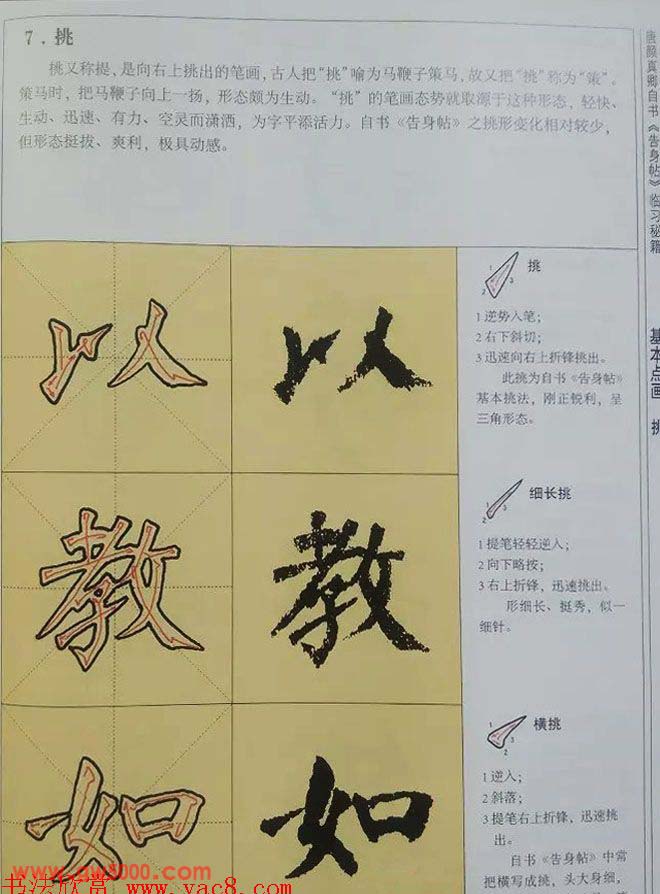 7.挑
挑又称提,是向右上挑出的笔画,古人把“挑”喻为马鞭子策马,故又把“挑”称为“策”。
策马时,把马鞭子向上一扬,形态颇为生动。“挑”的笔画态势就取源于这种形态,轻快、
生动、迅速、有力、空灵而潇洒,为字平添活力。自书《告身帖》之挑形变化相对较少,
但形态挺拔、爽利,极具动感。
唐颜真卿自书《告身帖》临习秘籍
基本点画 挑
以
以
挑
1逆势入笔;
2右下斜切;
3迅速向右上折锋挑出。
此挑为自书《告身帖》
基本挑法,刚正锐利,呈
三角形态。
教
教
细长挑
1提笔轻轻逆入;
2向下略按;
3右上折锋,迅速挑出。
形细长、挺秀,似一
细针。
如
如
横挑
1逆入;
2斜落;
3提笔右上折锋,迅速挑
出。
自书《告身帖》中常
把横写成挑,头大身细,
书法欣赏 www.yac8.com